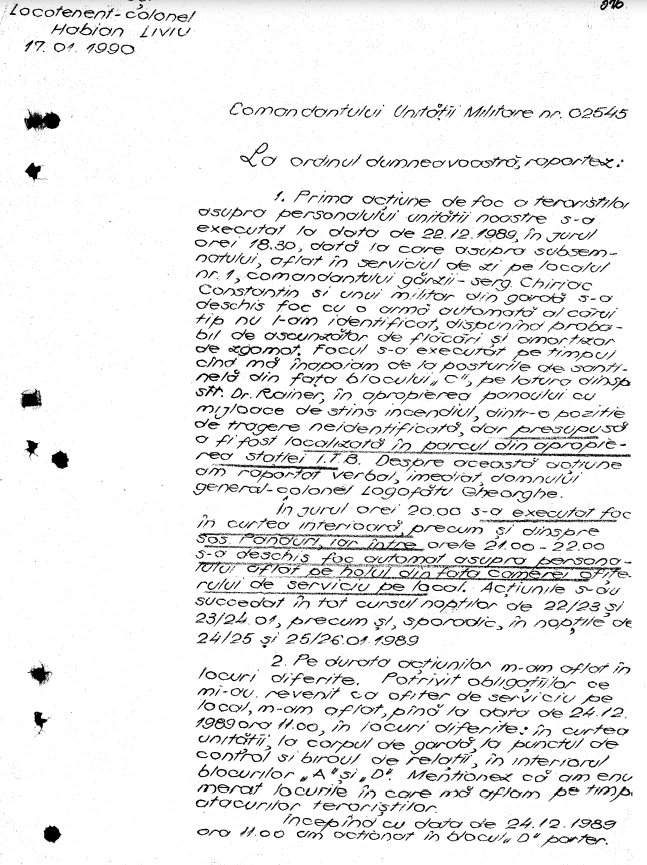 Locotenent-colonel
Habian LIVIU
17.01.1990
Comandantului Unității Militare nr. 02545
La ordinul dumneavoastră, raportez:
1. Prima acțiune de foc a teroriștilor
asupra personalului unității noastre s-a
executat la data de 22.12.1989, în jurul
orei 18.30, dată la care asupra subsem-
natului, aflat în serviciul de zi pe localul
nr. 1, comandantului gărzii - serg. Chiriac
Constantin si unui militar din gardă s-a
deschis foc cu o armă automată al cărui
tip nu l-am identificat, dispunînd proba-
bil de ascunzător de flăcări și amortizor
de zgomot. Focul s-a executat pe timpul
cînd mă înapoiam de la posturile de santi-
nelă din fața blocului „C", pe latura dinsp
str. Dr. Rainer, în apropierea panoului cu
mijloace de stins incendiul, dintr-o poziție
de tragere neidentificată, dar presupusă
a fi fost localizată în parcul din apropie-
rea stației I.T.B. Despre această acțiune
am raportat verbal, imediat, domnului
general-colonel Logofătu Gheorghe.
În jurul orei 20.00 s-a executat foc
în curtea interioară, precum și dinspre
șos. Panduri, iar între orele 21.00 - 22.00
s-a deschis foc automat asupra persona-
lului aflat pe holul din fața camerei ofițe-
rului de serviciu pe local. Acțiunile s-au
succedat în tot cursul nopților de 22/23 și
23/24.01, precum și, sporadic, în nopțile de
24/25 și 25/26.01.1989
2. Pe durata acțiunilor m-am aflat în
locuri diferite. Potrivit obligațiilor ce
mi-au revenit ca ofițer de serviciu pe
local, m-am aflat, pînă la data de 24.12.
1989 ora 11.00, în locuri diferite: în curtea
unității, la corpul de gardă, la punctul de
control si biroul de relații, în interiorul
blocurilor „A" și „D". Menționez că am enu
merat locurile în care mă aflam pe timp
atacurilor teroriștilor.
Începînd cu data de 24.12.1989
ora 11.00 am acționat în blocul „D" parter.